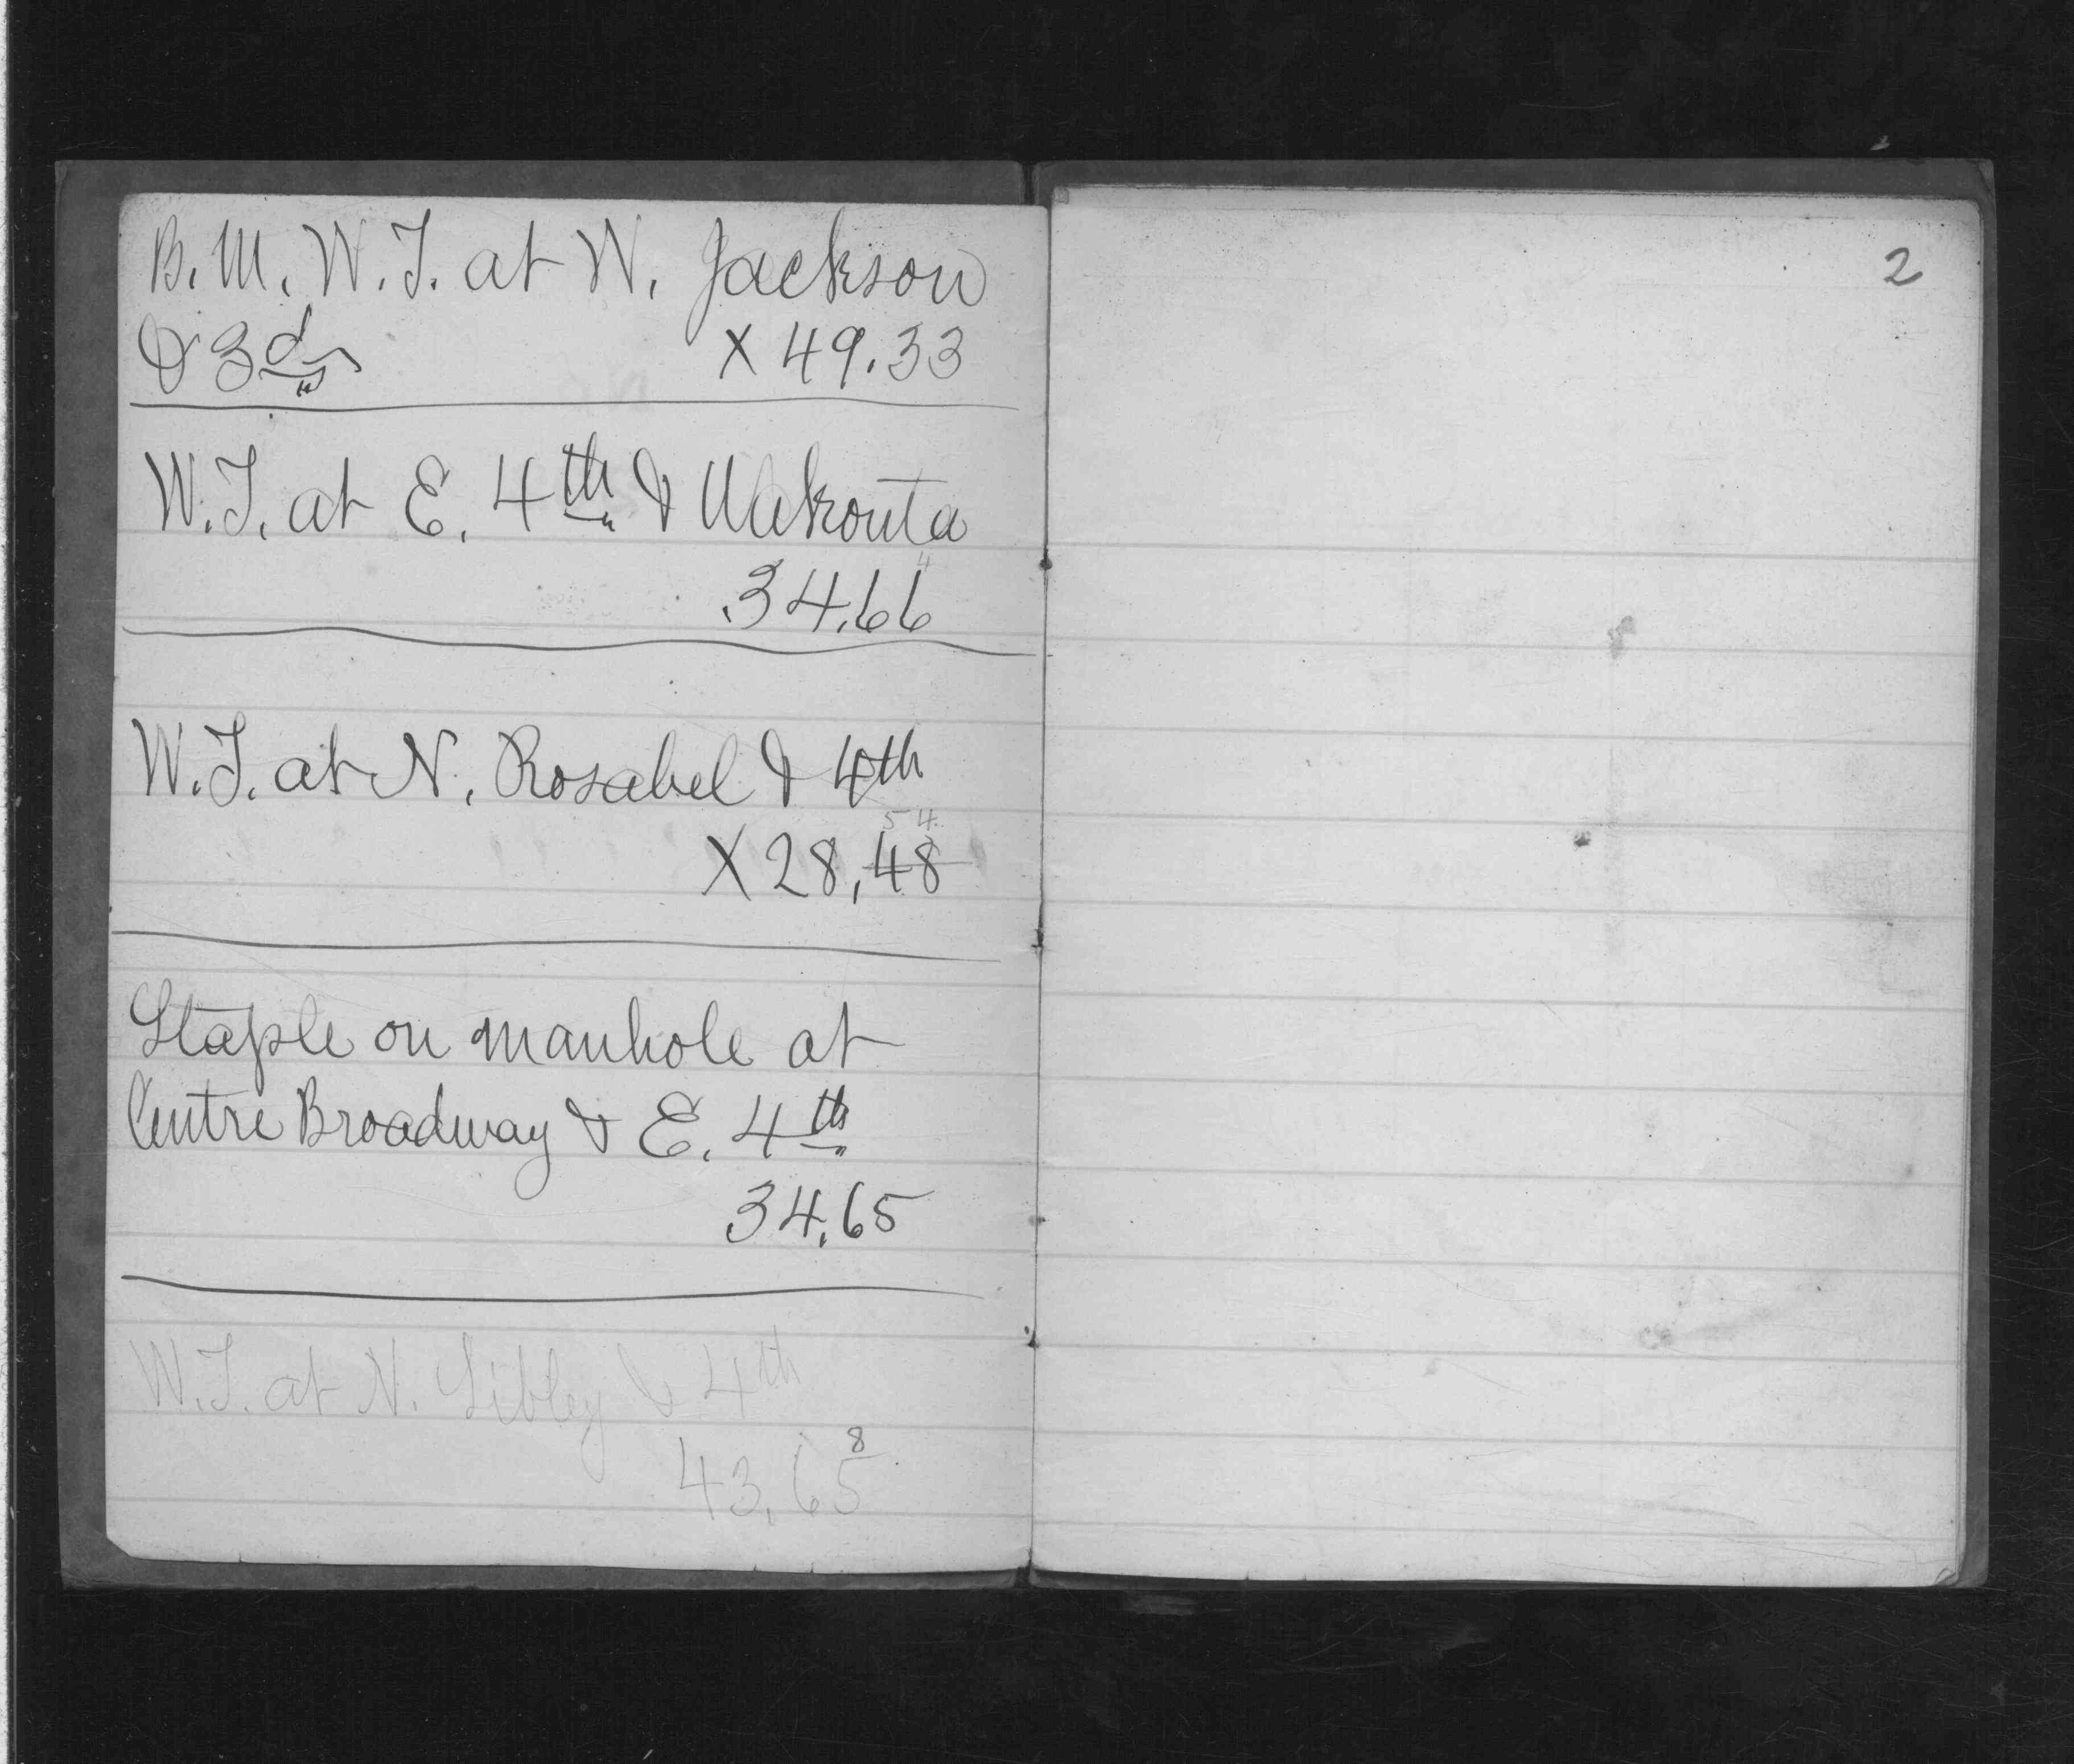 B. M. W. T. at W. Jackson
& 3d X 49.33
W. T. at E. 4th & Wakouta
34.66
W. T. at N. Rosabel & 4th
54
X 28,48
Staple on manhole at
Centre Broadway & E. 4th
34.65
W. T. at N. Sibley & 4th
8
43.65
2